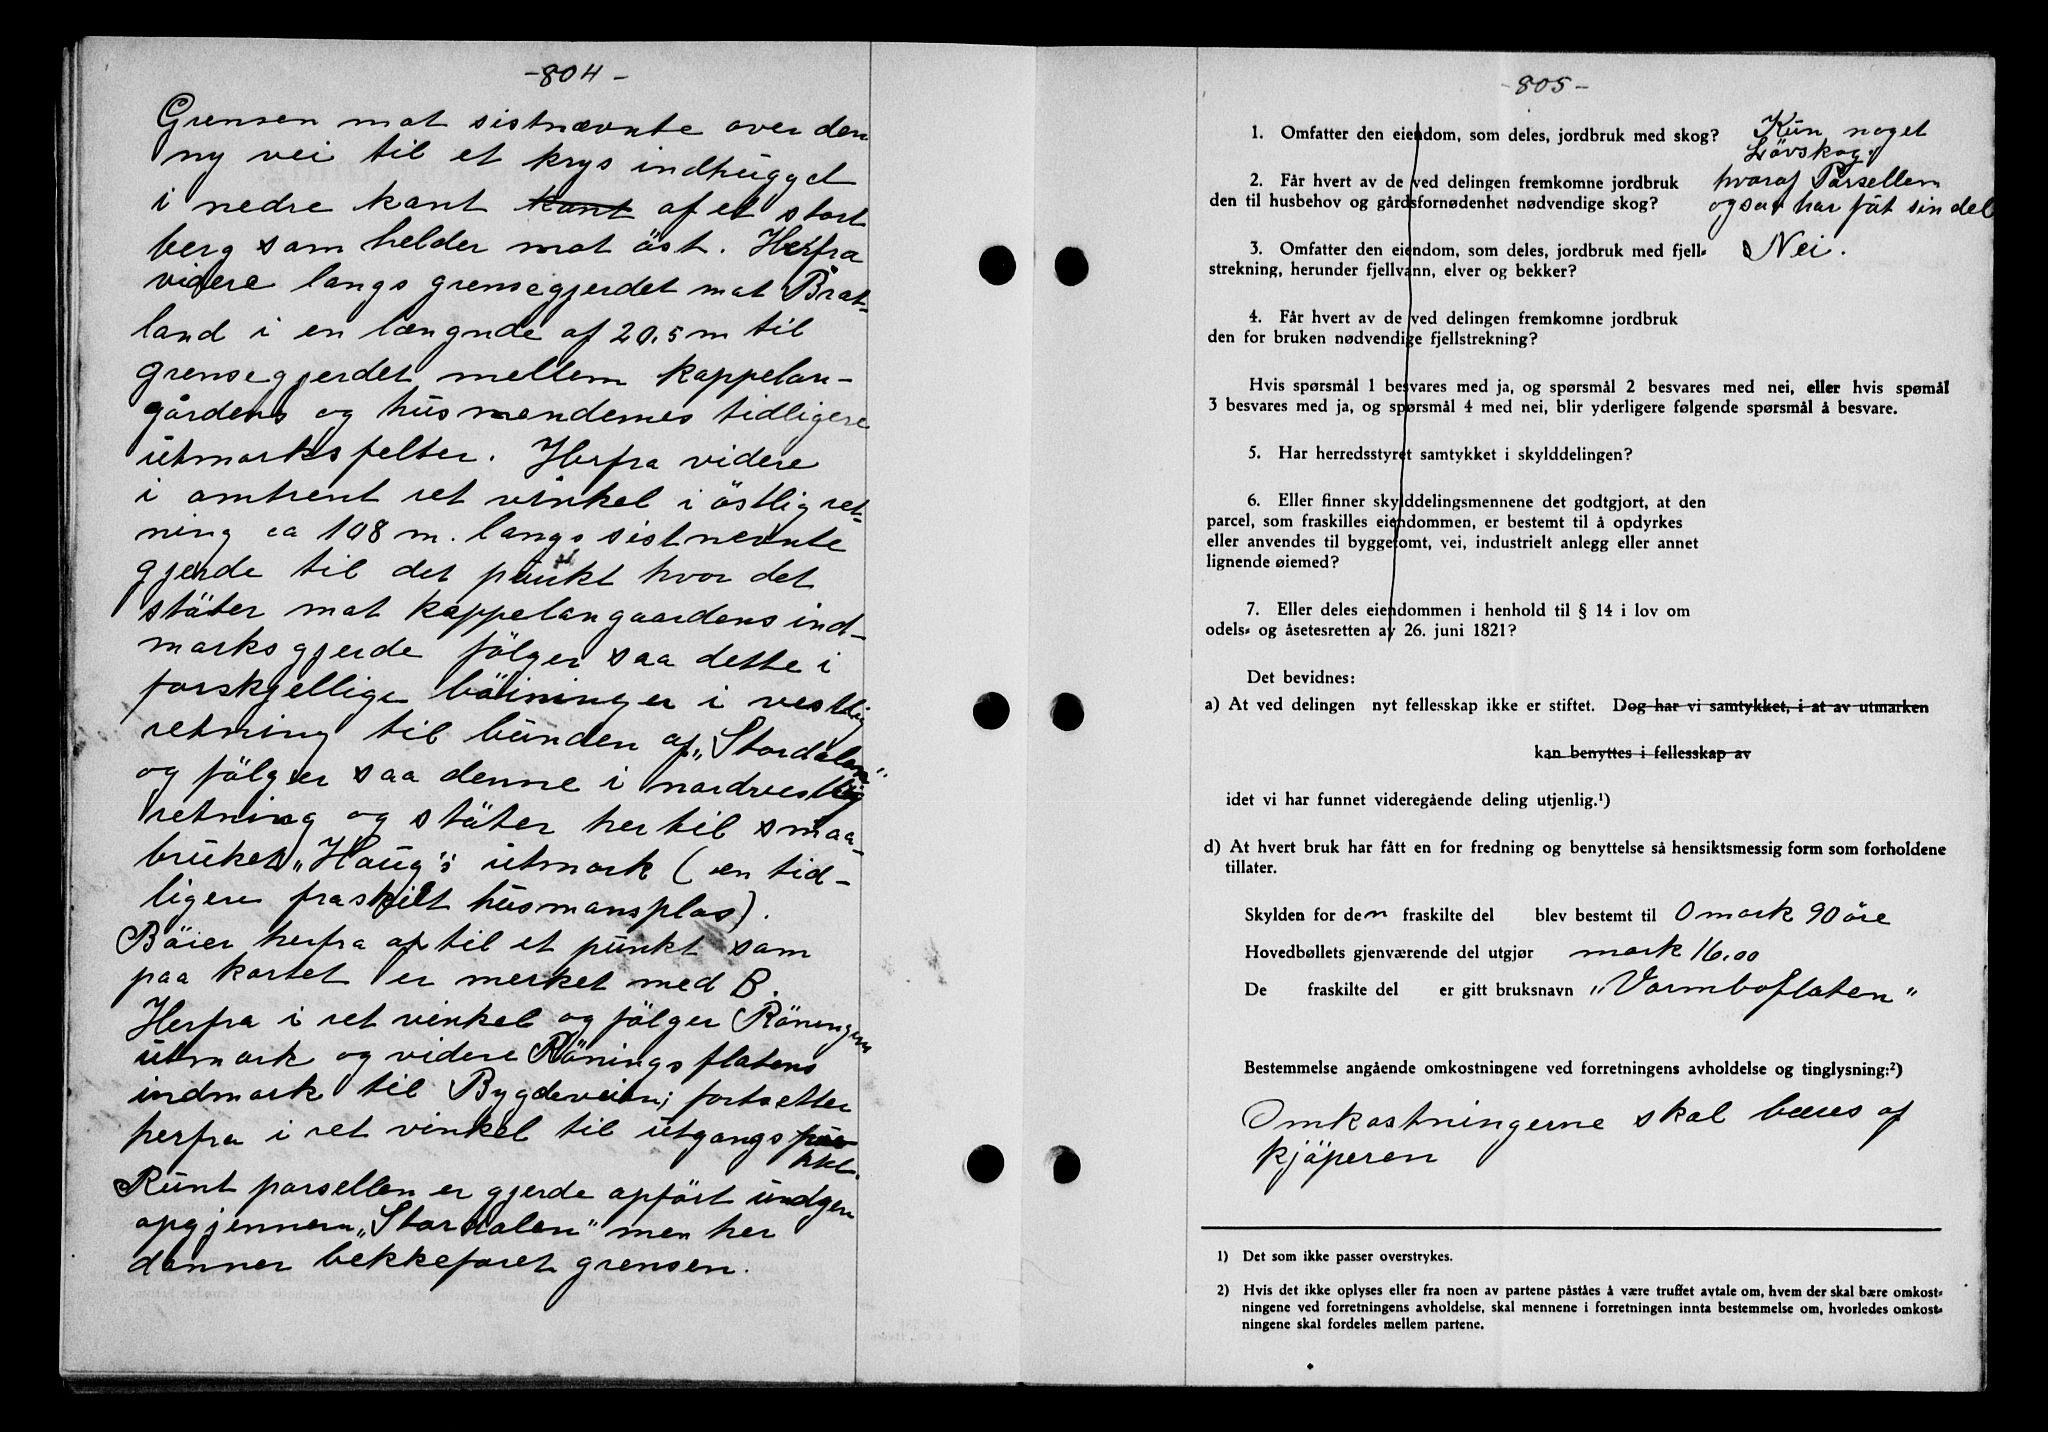 -804-
Grensen mot sistnævnte over den
ny vei til et krys indhugget
i nedre kant kant af et stort
berg som helder mot öst. Herfra
videre langs grensegjerdet mot Brat-
land i en længnde af 20.5 m til
grensegjerdet mellem kappelan-
gårdens og husmendenes tidligere
utmarksfelter. Herfra videre
i omtrent ret vinkel i östlig ret-
ning ca 108 m. langs sistnevnte
gjerde til det punkt hvor det
stöter mot kappelangaardens ind-
marksgjerde fölger saa dette i
forskjellige böininger i vestlig
retning til bunden af „Stordalen"
og fölger saa denne i nordvestlig
retning og stöter her til smaa-
bruket „Haug's utmark (en tid-
ligere fraskilt husmansplas).
Böier herfra af til et punkt som
paa kartet er merket med B.
Herfra i ret vinkel og fölger Röningens
utmark og videre Röningsflatens
indmark til Bygdeveien; fortsetter
herfra i ret vinkel til utgangspu-
nkt.
Runt parsellen er gjerde opfört undgen
opgjennem „Stordalen" men her
danner bekkefaret grensen.
-805-
1. Omfatter den eiendom, som deles, jordbruk med skog? Kun noget
Lövskog.
2. Får hvert av de ved delingen fremkomne jordbruk hvoraf Parsellen
den til husbehov og gårdsfornødenhet nødvendige skog? ogsaa har fåt sin del
3. Omfatter den eiendom, som deles, jordbruk med fjell- Nei.
strekning, herunder fjellvann, elver og bekker?
4. Får hvert av de ved delingen fremkomne jordbruk
den for bruken nødvendige fjellstrekning?
Hvis spørsmål 1 besvares med ja, og spørsmål 2 besvares med nei, eller hvis spømål
3 besvares med ja, og spørsmål 4 med nei, blir yderligere følgende spørsmål å besvare.
5. Har herredsstyret samtykket i skylddelingen?
6. Eller finner skylddelingsmennene det godtgjort, at den
parcel, som fraskilles eiendommen, er bestemt til å opdyrkes
eller anvendes til byggetomt, vei, industrielt anlegg eller annet
lignende øiemed?
7. Eller deles eiendommen i henhold til § 14 i lov om
odels- og åsetesretten av 26. juni 1821?
Det bevidnes:
a) At ved delingen nyt fellesskap ikke er stiftet. Dog har vi samtykket, i at av utmarken
kan benyttes i fellesskap av
idet vi har funnet videregående deling utjenlig.¹)
d) At hvert bruk har fått en for fredning og benyttelse så hensiktsmessig form som forholdene
tillater.
Skylden for den fraskilte del blev bestemt til 0 mark 90 öre
Hovedbøllets gjenværende del utgjør mark 16.00
De fraskilte del er gitt bruksnavn „Varmboflaten"
Bestemmelse angående omkostningene ved forretningens avholdelse og tinglysning:²)
Omkostningerne skal bæres af
kjöperen
1) Det som ikke passer overstrykes.
2) Hvis det ikke oplyses eller fra noen av partene påståes å være truffet avtale om, hvem der skal bære omkost-
ningene ved forretningens avholdelse, skal mennene i forretningen innta bestemmelse om, hvorledes omkost-
ningene skal fordeles mellem partene.